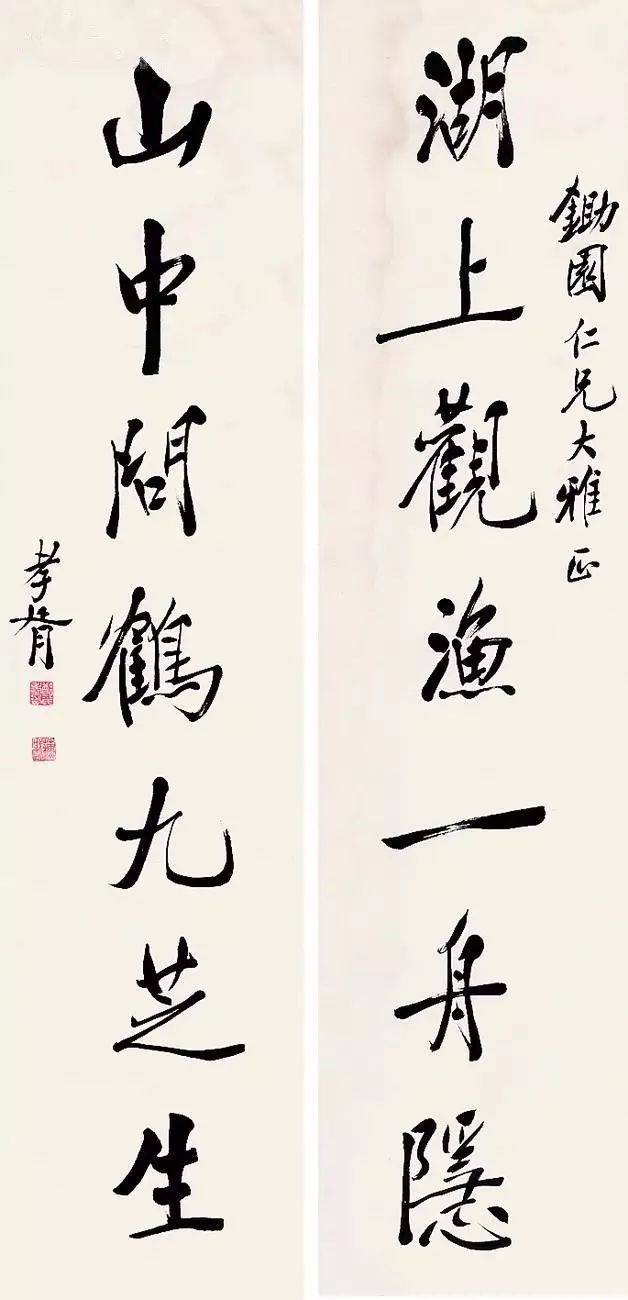 鋤園仁兄大雅正
湖上觀漁一舟隱
山中問鶴九芝生
孝胥